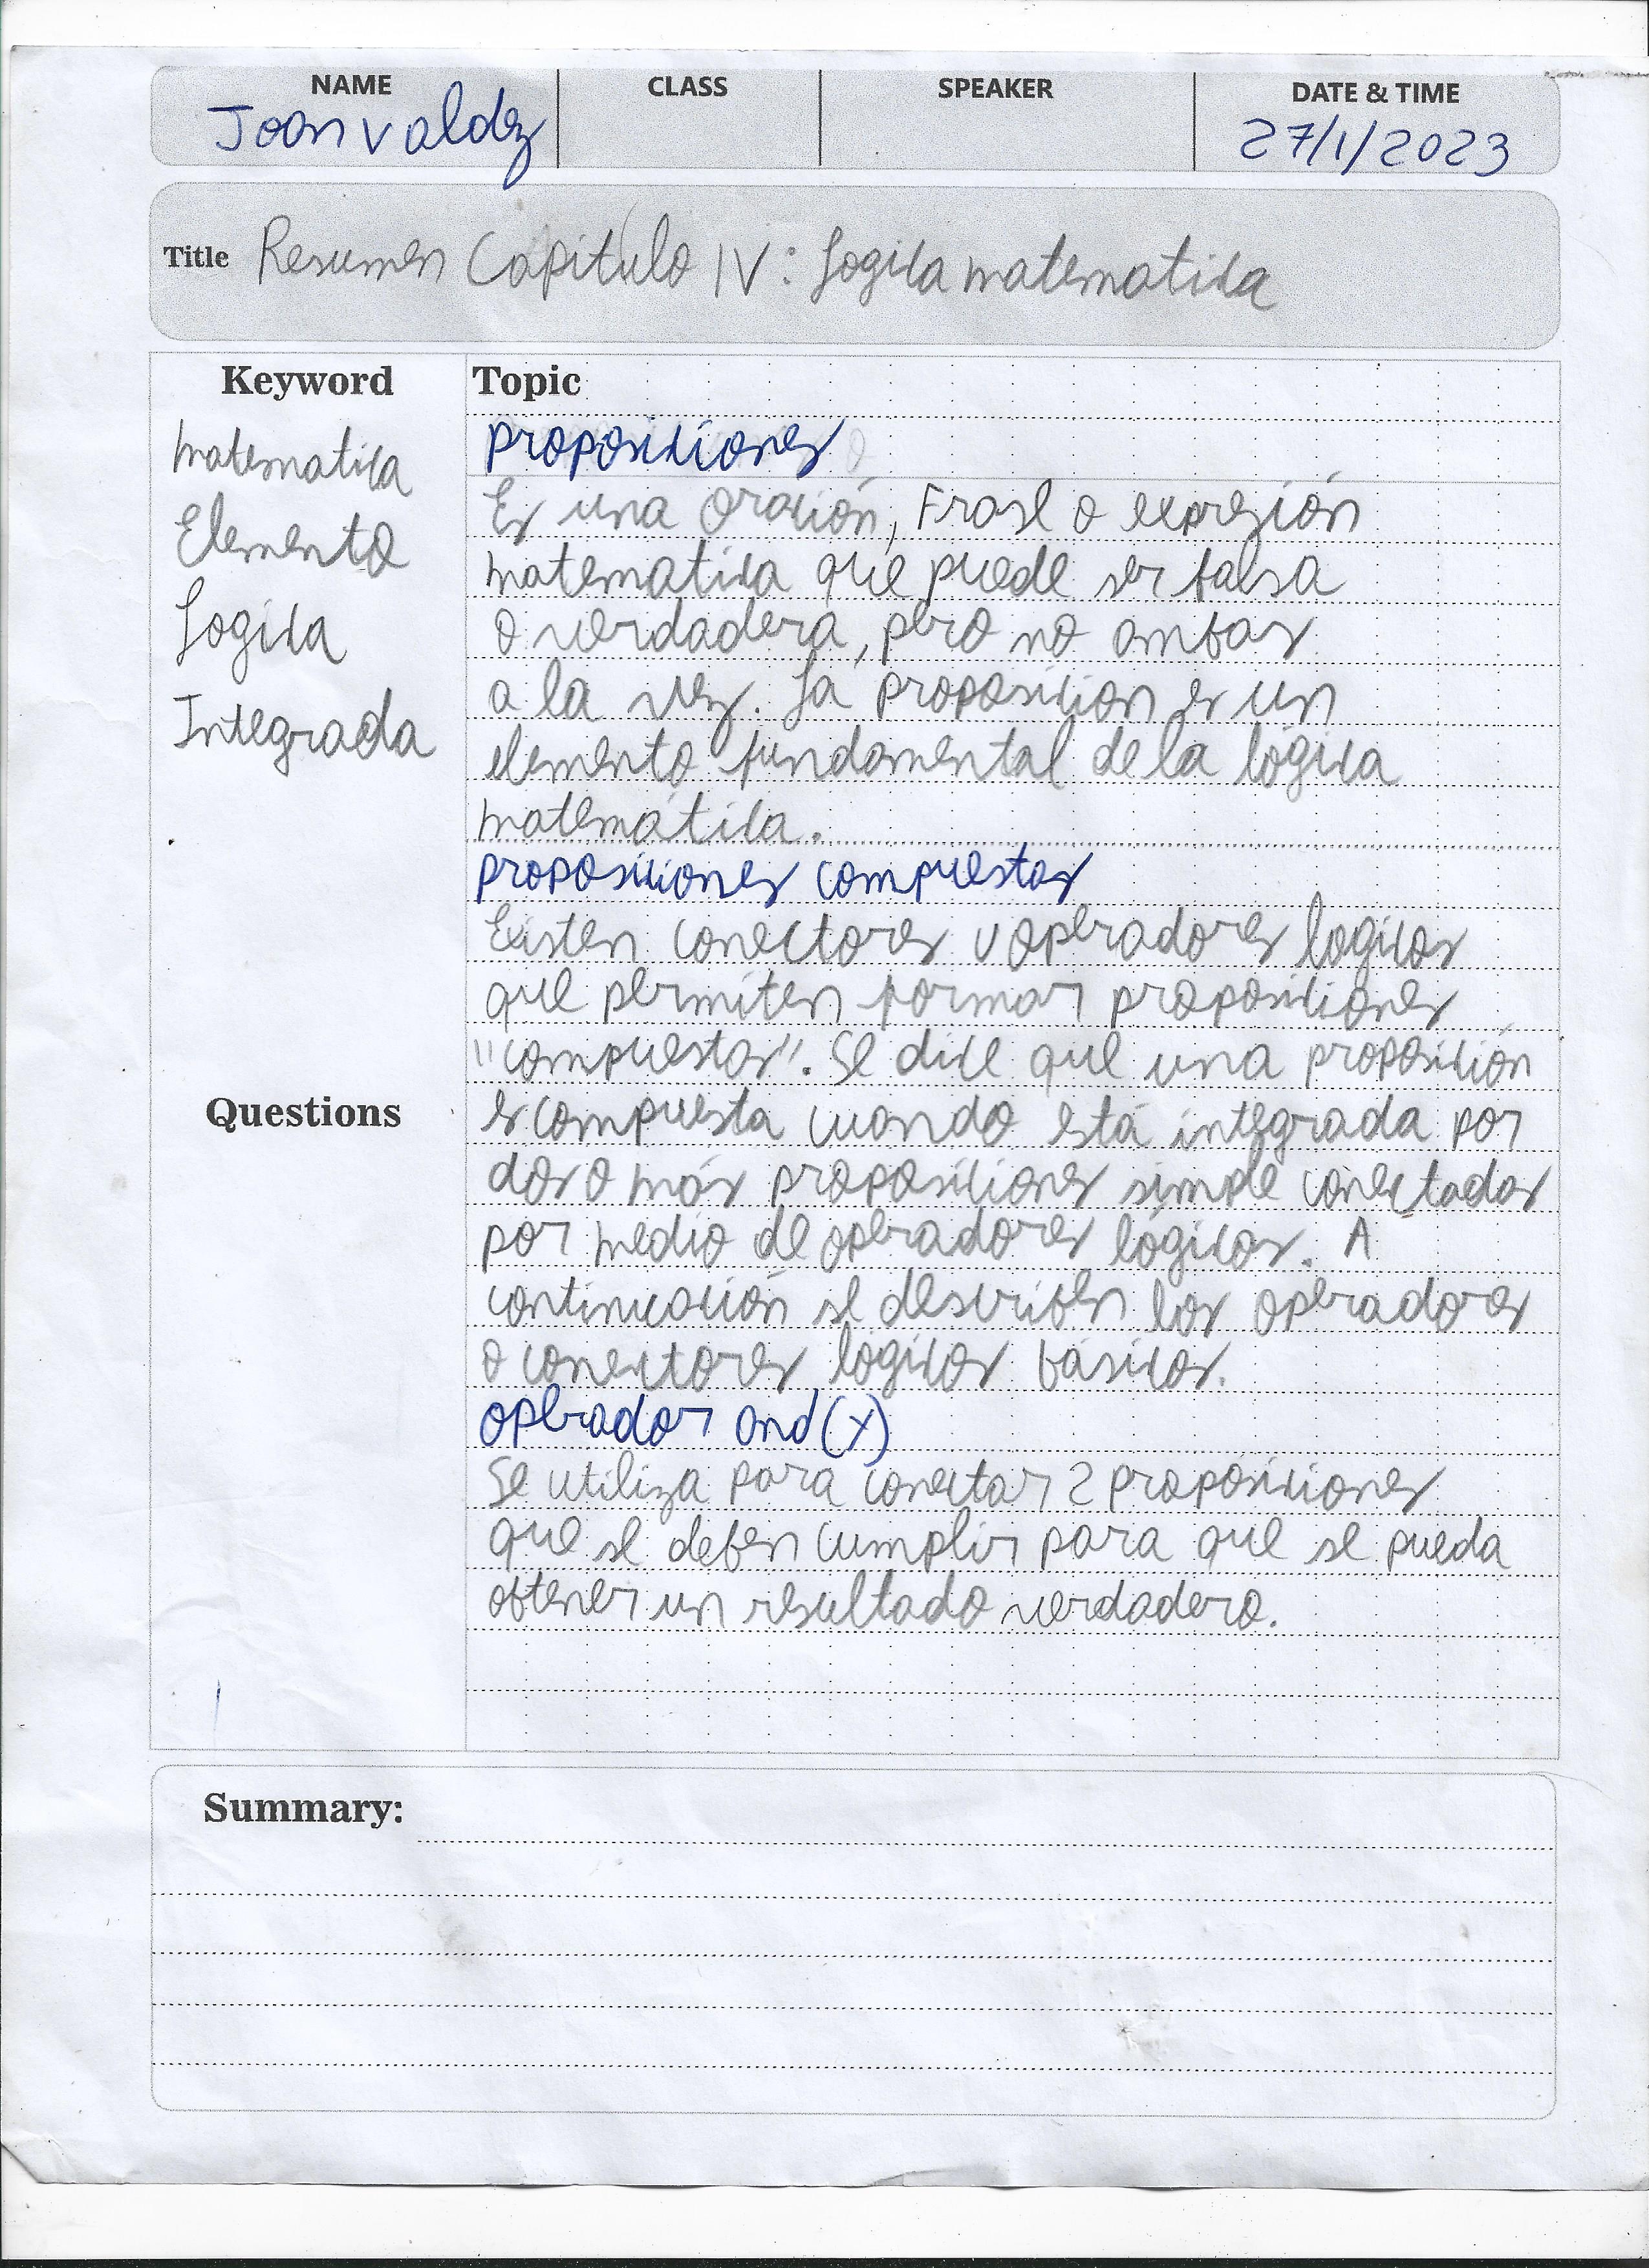 NAME
CLASS
SPEAKER
DATE & TIME
Joan Valdez
27/1/2023
Title Resumen Capitulo IV: Logica matematica
Keyword
matematica
Elemento
Logica
Integrada
Questions
Topic
proposiciones
Es una oración, Frase o expresión
matematica que puede ser falsa
o verdadera, pero no ambas
a la vez. La proposicion es un
elemento fundamental de la lógica
matemática.
proposiciones compuestas
Existen conectores u operadores logicos
que permiten formar proposiciones
"compuestas". Se dice que una proposición
es compuesta cuando está integrada por
dos o más proposiciones simple conectadas
por medio de operadores lógicos. A
continuación se describen los operadores
o conectores lógicos básicos.
operador and (x)
Se utiliza para conectar 2 proposiciones
que se deben cumplir para que se pueda
obtener un resultado verdadero.
Summary: